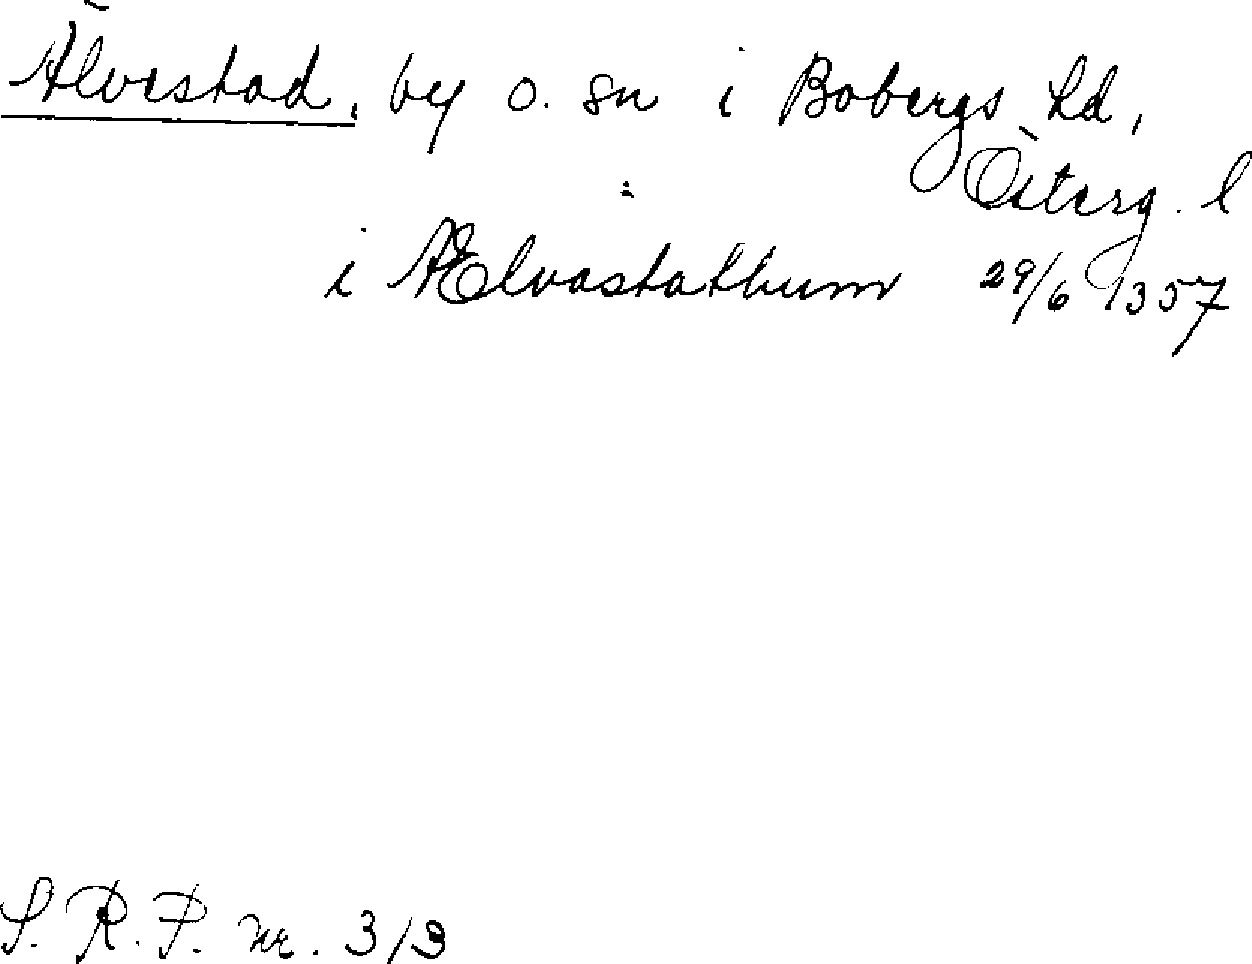 Älvestad, by o. sn i Bobergs hd,
Österg. l
i Ælvastathum 29/6 1357
S. R. P. nr. 313